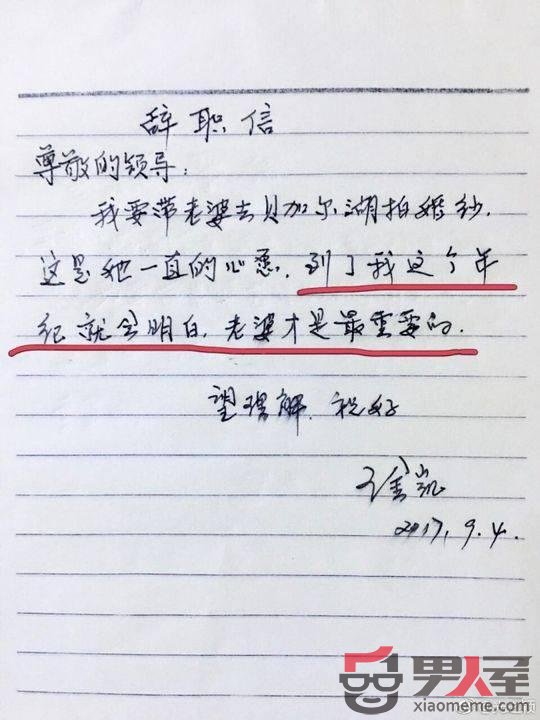 辞职信
尊敬的领导:
我要带老婆去贝加尔湖拍婚纱,
这是她一直的心愿,到了我这个年
纪就会明白,老婆才是最重要的.
望理解,祝好
2017.9.4.
男人窝
xiaomeme.com